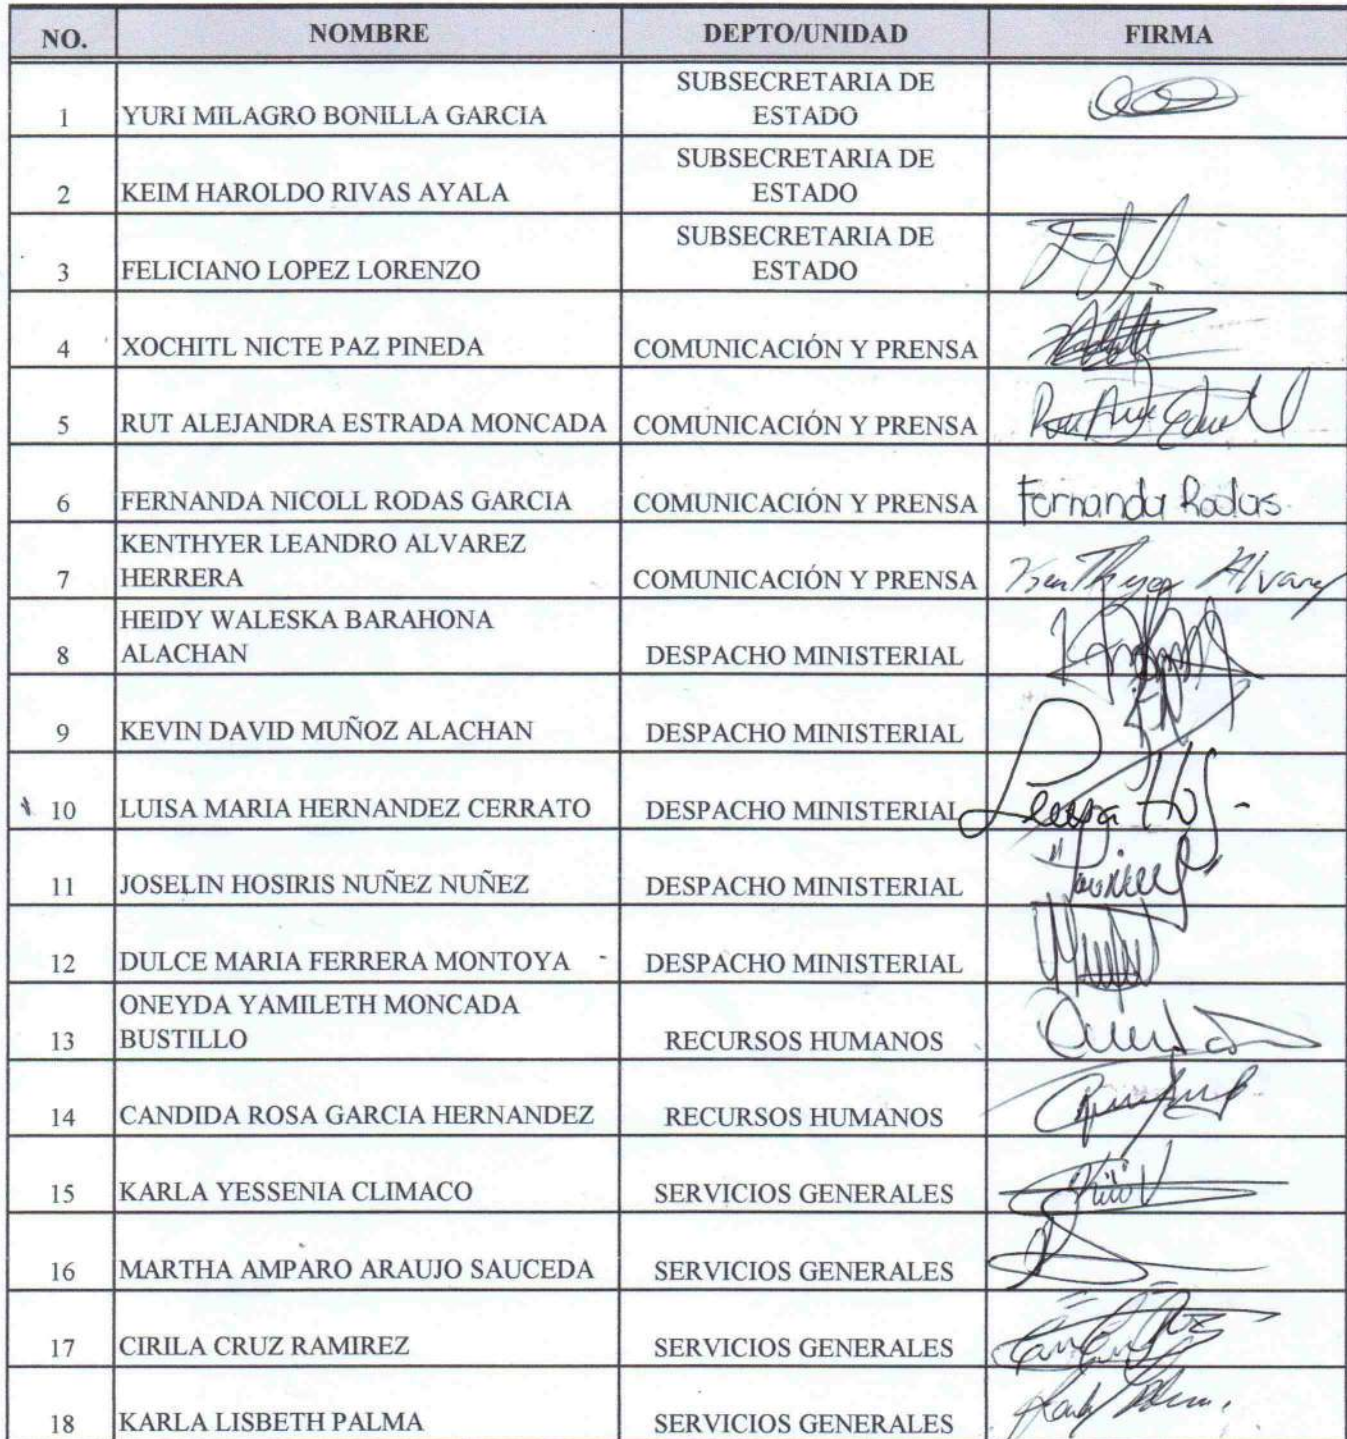 NO. NOMBRE DEPTO/UNIDAD FIRMA
SUBSECRETARIA DE
1 YURI MILAGRO BONILLA GARCIA ESTADO
SUBSECRETARIA DE
2 KEIM HAROLDO RIVAS AYALA ESTADO
SUBSECRETARIA DE
3 FELICIANO LOPEZ LORENZO ESTADO
4 XOCHITL NICTE PAZ PINEDA COMUNICACIÓN Y PRENSA
5 RUT ALEJANDRA ESTRADA MONCADA COMUNICACIÓN Y PRENSA
6 FERNANDA NICOLL RODAS GARCIA COMUNICACIÓN Y PRENSA Fernanda Rodas
KENTHYER LEANDRO ALVAREZ
7 HERRERA COMUNICACIÓN Y PRENSA
HEIDY WALESKA BARAHONA
8 ALACHAN DESPACHO MINISTERIAL
9 KEVIN DAVID MUÑOZ ALACHAN DESPACHO MINISTERIAL
10 LUISA MARIA HERNANDEZ CERRATO DESPACHO MINISTERIAL
11 JOSELIN HOSIRIS NUÑEZ NUÑEZ DESPACHO MINISTERIAL
12 DULCE MARIA FERRERA MONTOYA DESPACHO MINISTERIAL
ONEYDA YAMILETH MONCADA
13 BUSTILLO RECURSOS HUMANOS
14 CANDIDA ROSA GARCIA HERNANDEZ RECURSOS HUMANOS
15 KARLA YESSENIA CLIMACO SERVICIOS GENERALES
16 MARTHA AMPARO ARAUJO SAUCEDA SERVICIOS GENERALES
17 CIRILA CRUZ RAMIREZ SERVICIOS GENERALES
18 KARLA LISBETH PALMA SERVICIOS GENERALES